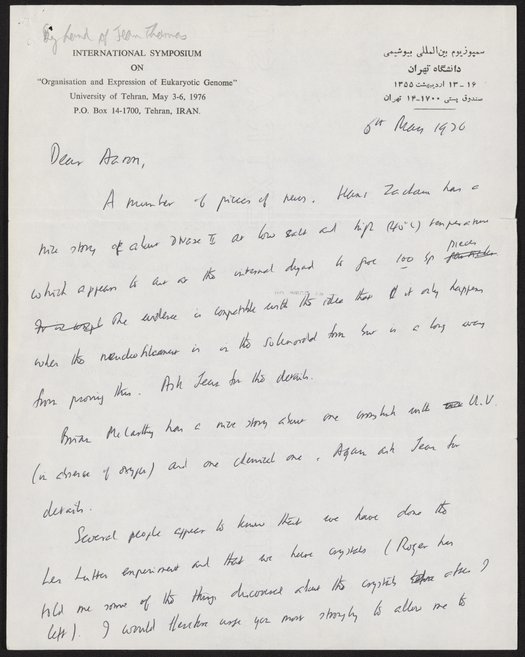 By hand of Jean Thomas
INTERNATIONAL SYMPOSIUM
ON
"Organisation and Expression of Eukaryotic Genome"
University of Tehran, May 3-6, 1976
P.O. Box 14-1700, Tehran, IRAN.
سمپوزیوم بین‌المللی بیوشیمی
دانشگاه تهران
۱۶ - ۱۳ اردیبهشت ۱۳۵۵
صندوق پستی ۱۷۰۰-۱۴ تهران
6th May 1976
Dear Aaron,
A number of pieces of news. Hans Zachau has a
nice story about DNase II at low salt and high (40°C) temperature
which appears to cut at the internal dyad to give 100 bp pieces
The evidence is compatible with the idea that it only happens
when the nucleofilament is in the solenoidal form but is a long way
from proving this. Ask Jean for the details.
Brian McCarthy has a nice story about one crosslink with U.V.
(in absence of oxygen) and one chemical one. Again ask Jean for
details.
Several people appear to know that we have done the
Len Lutter experiment and that we have crystals (Roger has
told me some of the things discovered about the crystals after I
left). I would therefore urge you most strongly to allow me to